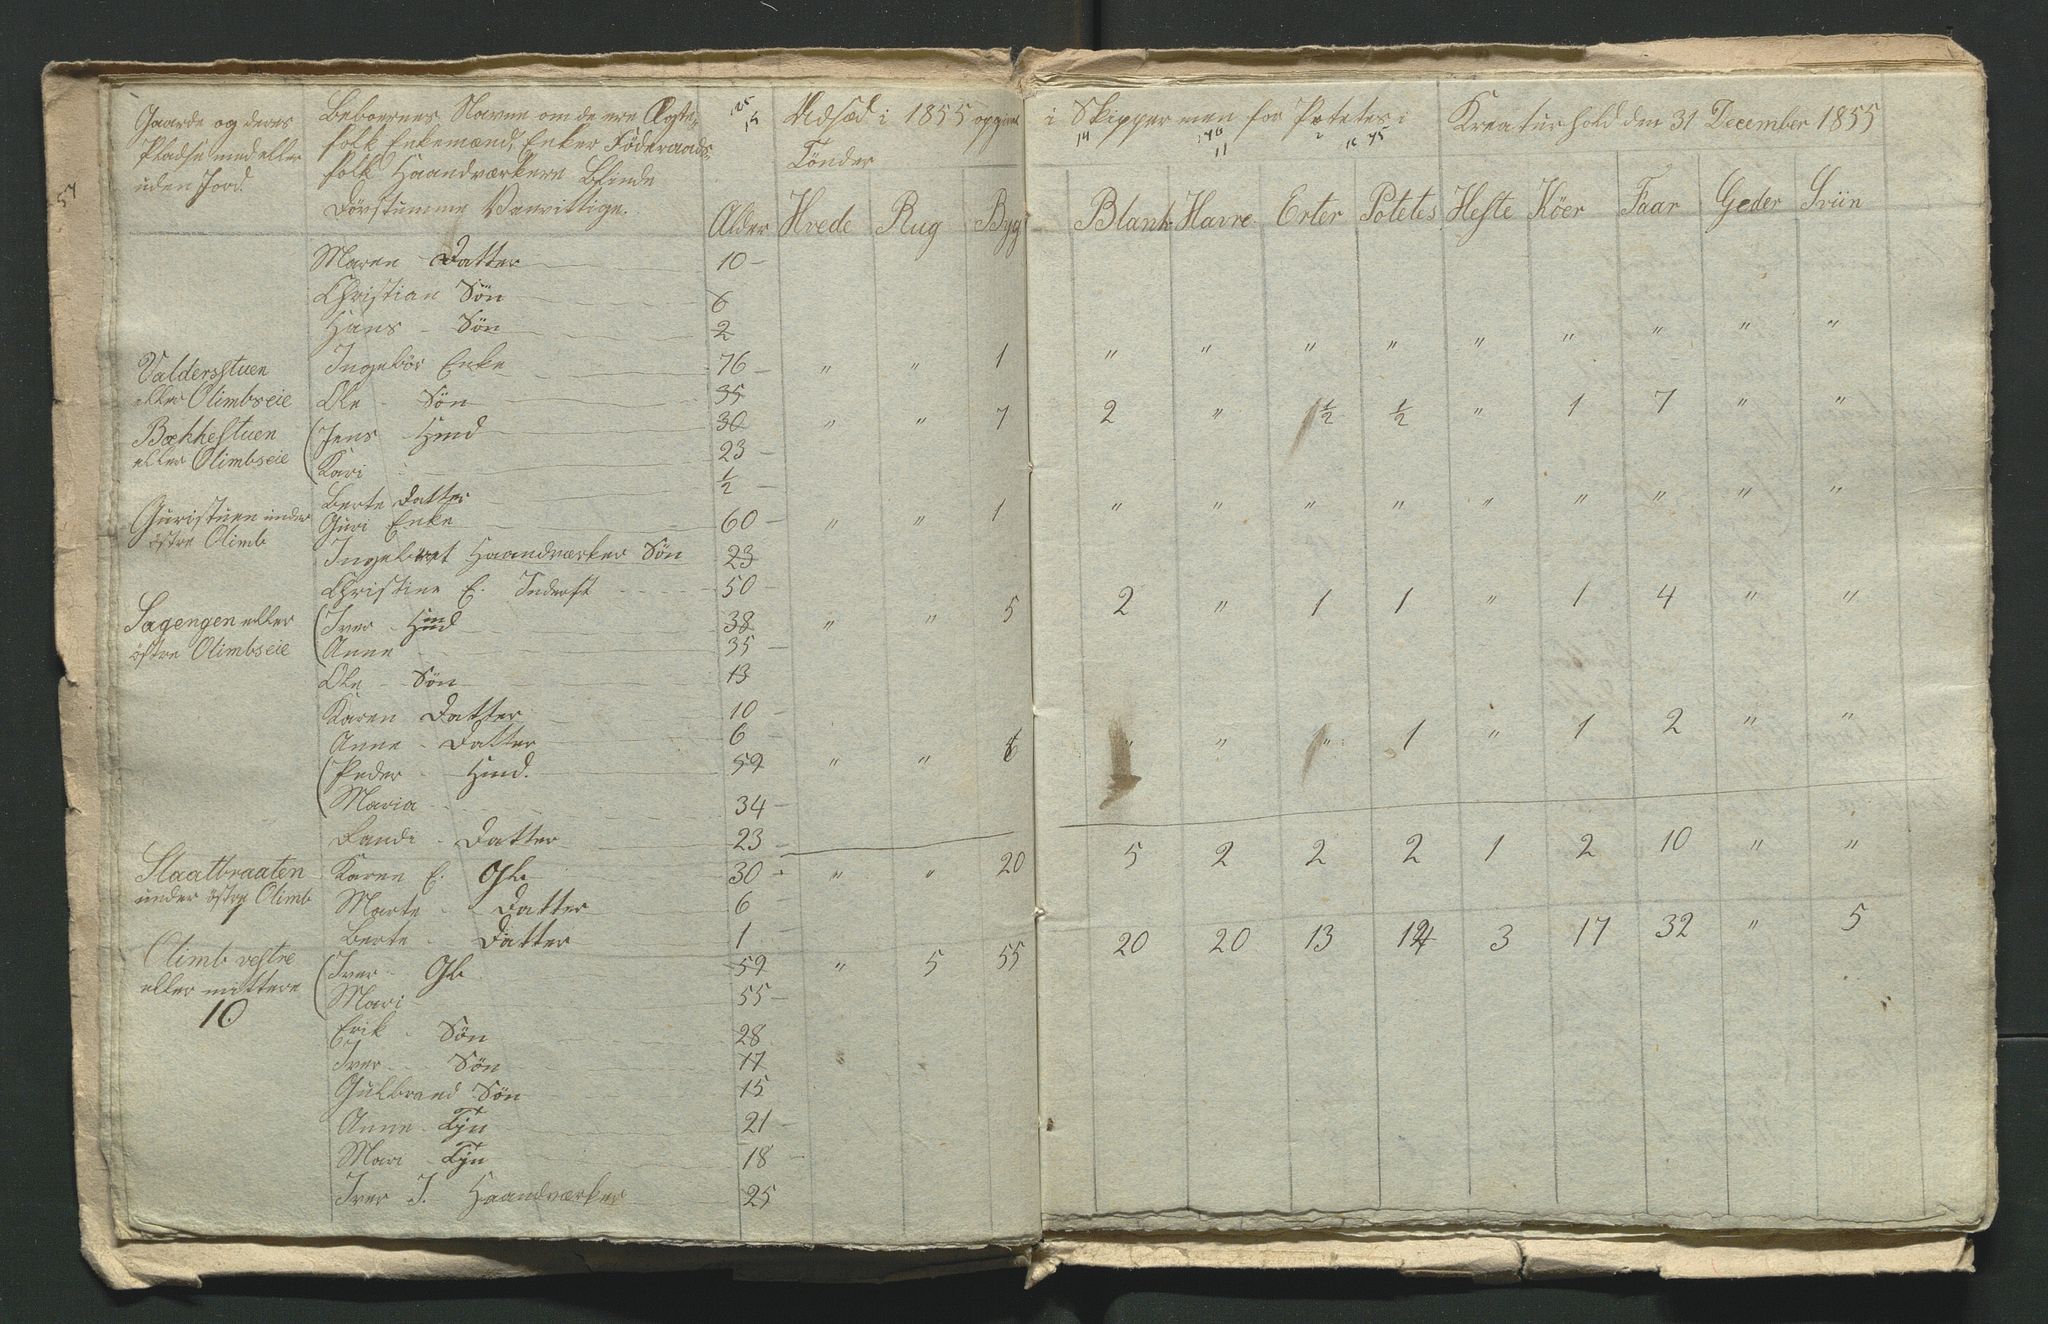 Gaarde og deres Beboernes Navne om de ere Ægte- Udsæd i 1855 opgivet i Skipper men for Potetes i Kreaturhold den 31 December 1855
Pladse med eller folk Enkemænd, Enker Föderaads- Tönder
uden Jord. folk Haandværkere Blinde
Dövstumme Vanvittige. Alder Hvede Rug Byg Blank Havre Erter Potetes Heste Köer Faar Geder Sviin
Maren Datter 10
Christian Sön 6
Hans Sön 2
Valdersstuen Ingebör Enke 76 " " 1 " " " " " " " " "
eller Olimbseie Ole Sön 35
Bækkestuen Jens Hmd 30 " " 7 2 " 1/2 1/2 " 1 7 " "
eller Olimbseie Kari 23
Berte Datter 1/2
Guristuen under Guri Enke 60 " " 1 " " " " " " " " "
östre Olimb
Ingebret Haandværker Sön 23
Christine E. Inderst 50
Sagengen eller Iver Hmd 38 " " 5 2 " 1 1 " 1 4 " "
östre Olimbseie Anne 35
Ole Sön 13
Karen Datter 10
Anne Datter 6
Peder Hmd. 59 " " 6 " " " 1 " 1 2 " "
Maria 34
Rande Datter 23
Slaatbraaten Karen E. Gb. 30 " " 20 5 2 2 2 1 2 10 " "
under östre Olimb Marte Datter 6
Berte Datter 1
Olimb vestre Iver Gb. 59 " 5 55 20 20 13 124 3 17 32 " 5
eller mittere Mari 55
10
Erik Sön 28
Iver Sön 17
Gulbrand Sön 15
Anne Tjn 21
Mari Tjn 18
Iver J. Haandværker 25